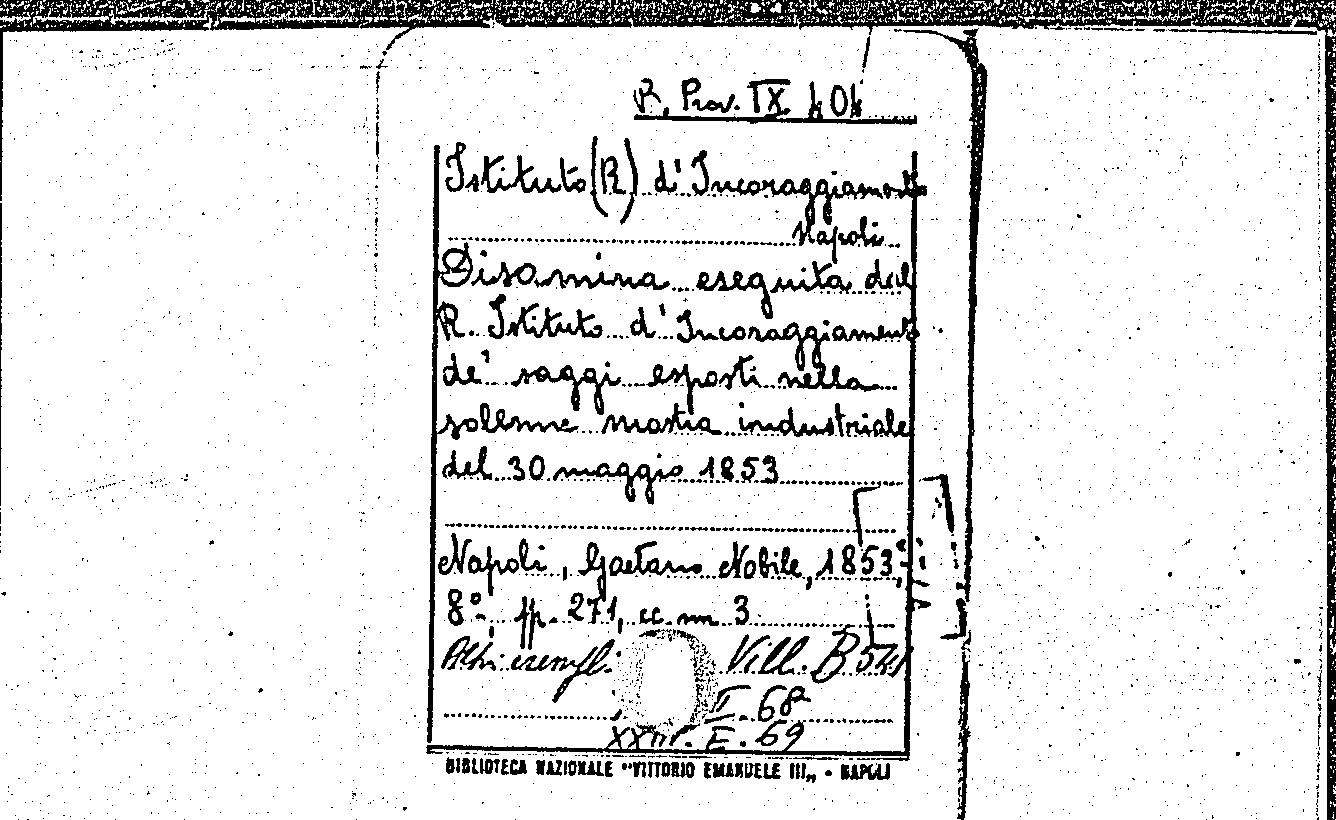 R. Prov. IX 404
Istituto (R) d'Incoraggiamento
Napoli
Disamina eseguita dal
R. Istituto d'Incoraggiamento
de' saggi esposti nella
solenne mostra industriale
del 30 maggio 1853
Napoli, Gaetano Nobile, 1853,
8º, pp. 271, cc. nn 3
Altri esempl: Vill. B 541
I. 68
E. 69
BIBLIOTECA NAZIONALE "VITTORIO EMANUELE III„ - NAPOLI